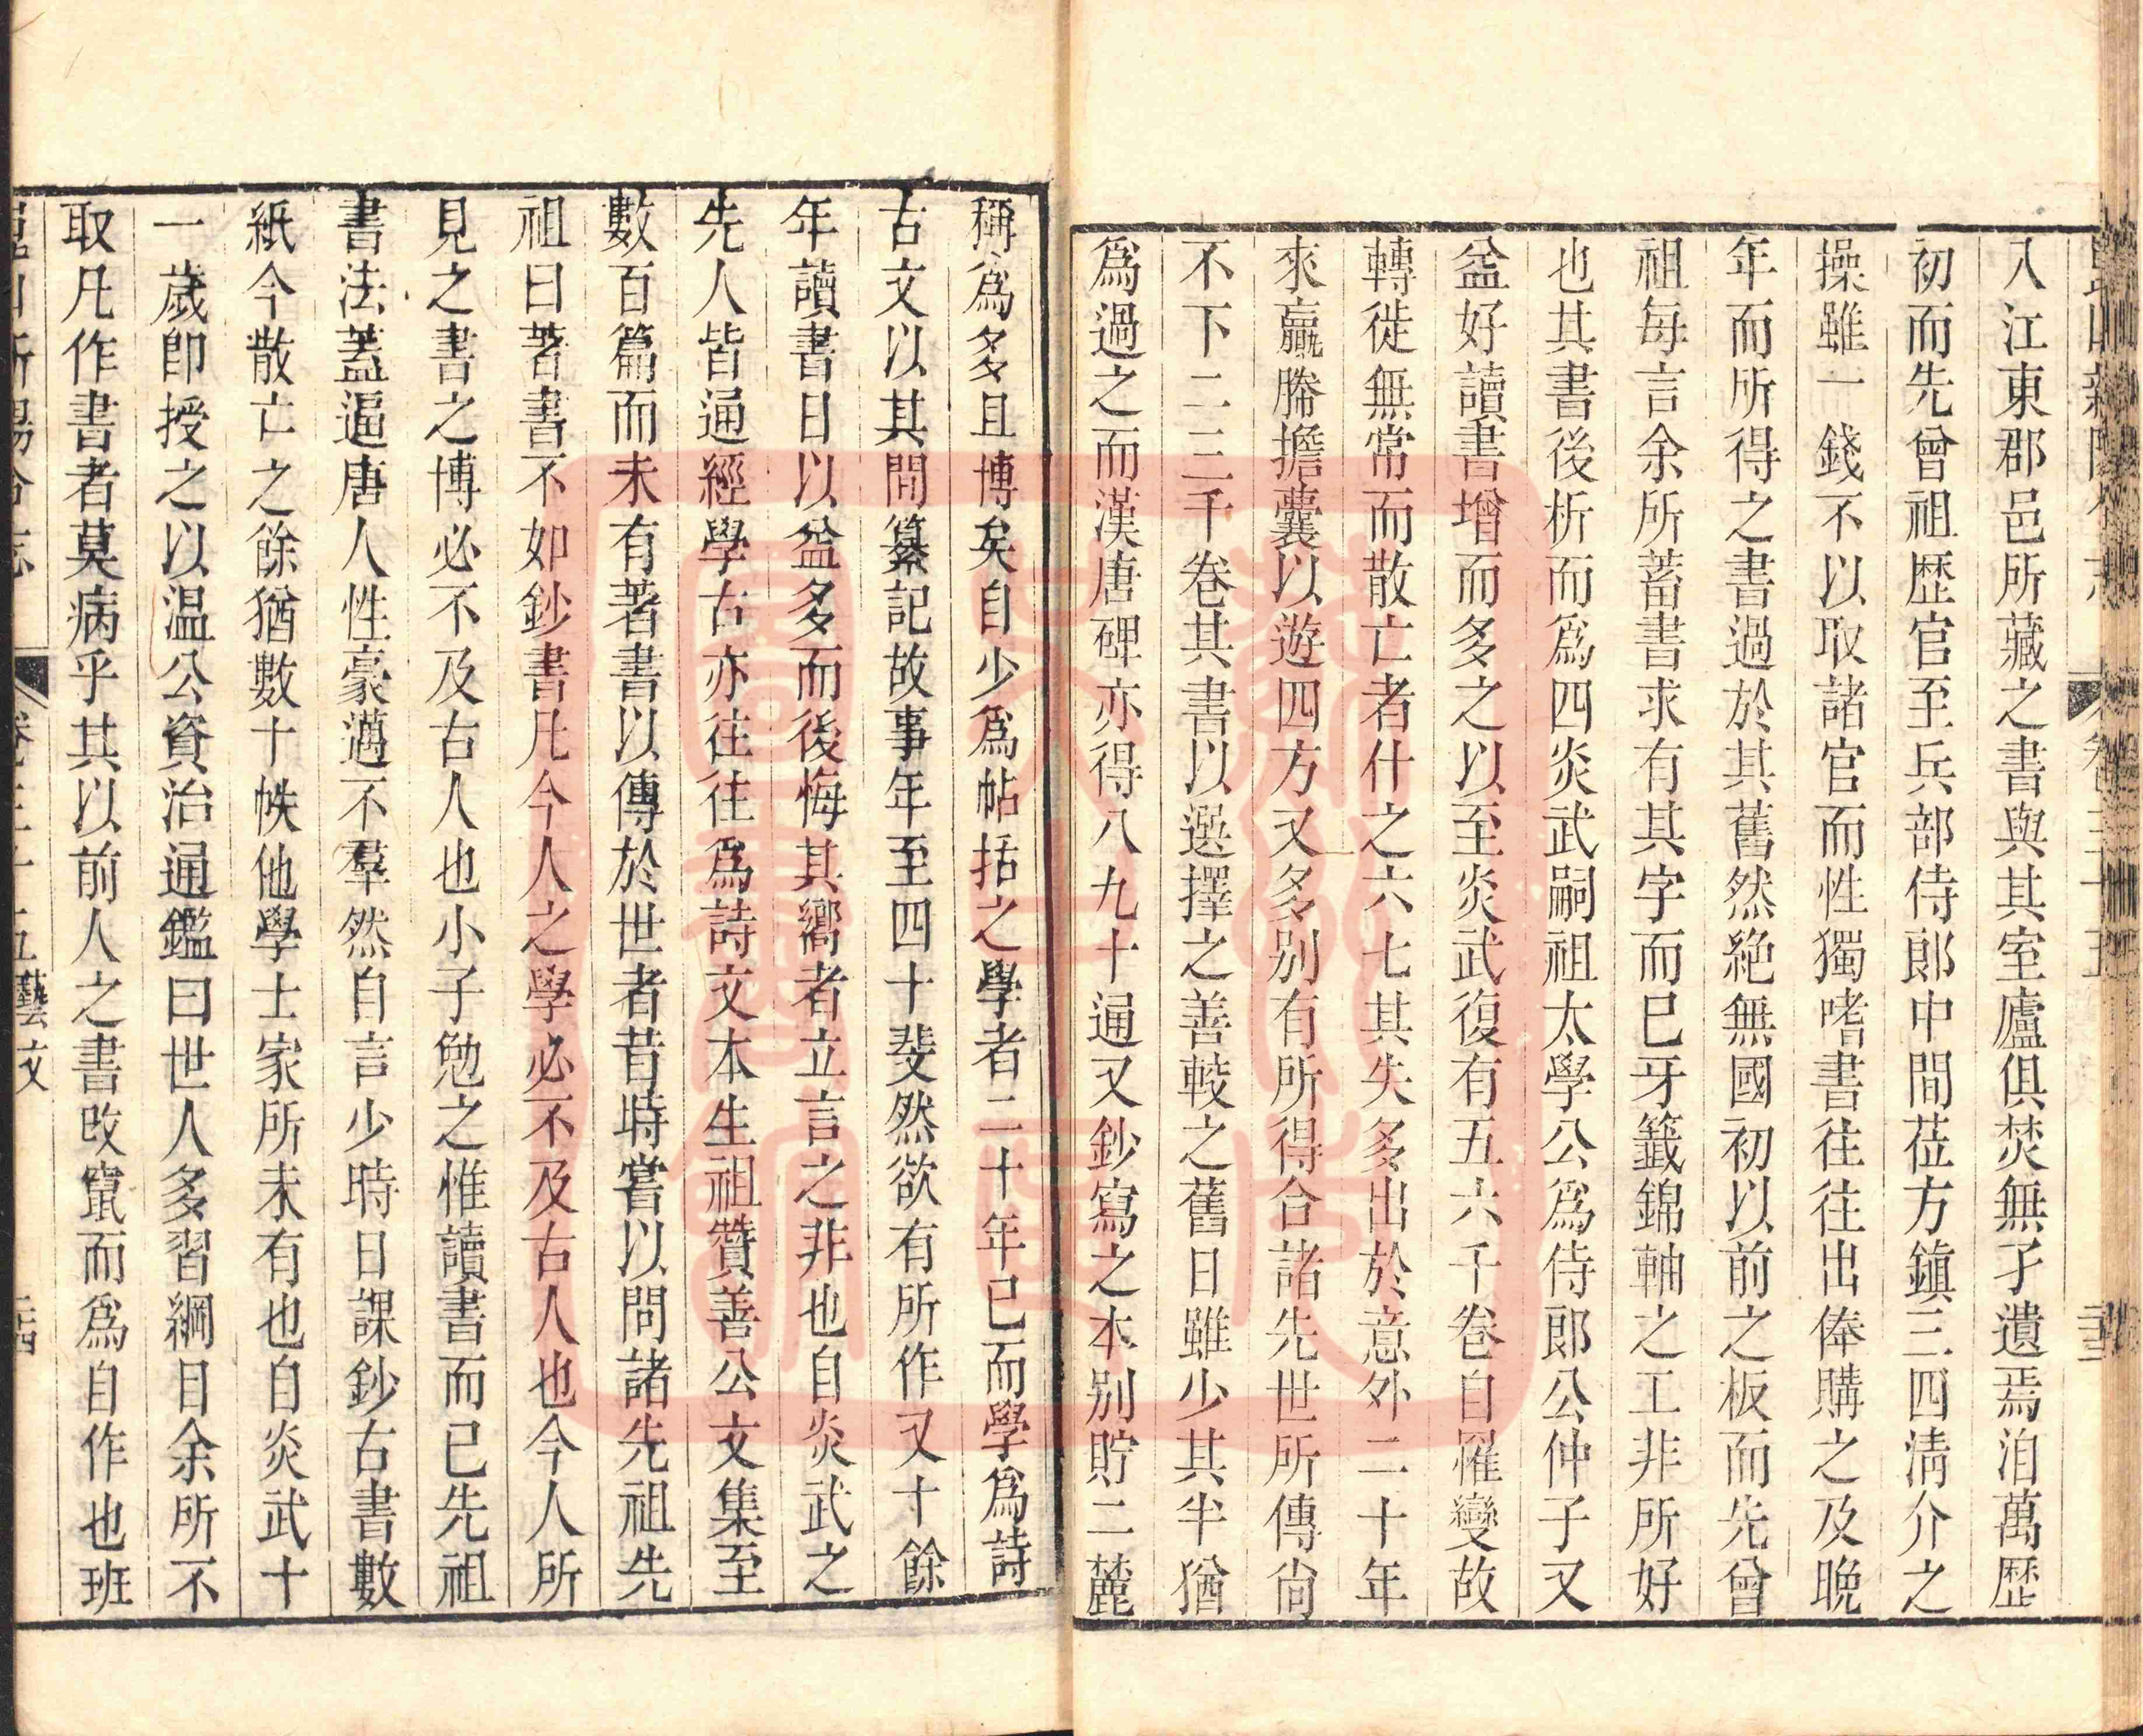 入江東郡邑所藏之書與其室廬俱焚無孑遺焉洎萬歷
初而先曾祖歷官至兵部侍郎中間莅方鎮三四淸介之
操雖一錢不以取諸官而性獨嗜書往往出俸購之及晚
年而所得之書過於其舊然絕無國初以前之板而先曾
祖每言余所蓄書求有其字而已牙籤錦軸之工非所好
也其書後析而爲四炎武嗣祖太學公爲侍郎公仲子又
益好讀書增而多之以至炎武復有五六千卷自罹變故
轉徙無常而散亡者什之六七其失多出於意外二十年
來贏縢擔囊以遊四方又多别有所得合諸先世所傳尙
不下二三千卷其書以選擇之善較之舊日雖少其半猶
爲過之而漢唐碑亦得八九十通又鈔寫之本别貯二麓
稱爲多且博矣自少爲帖括之學者二十年已而學爲詩
古文以其間纂記故事年至四十斐然欲有所作又十餘
年讀書日以益多而後悔其嚮者立言之非也自炎武之
先人皆通經學古亦往往爲詩文本生祖贊善公文集至
數百篇而未有著書以傳於世者昔時嘗以問諸先祖先
祖曰著書不如鈔書凡今人之學必不及古人也今人所
見之書之博必不及古人也小子勉之惟讀書而已先祖
書法蓋逼唐人性豪邁不羣然自言少時日課鈔古書數
紙今散亡之餘猶數十帙他學士家所未有也自炎武十
一歲卽授之以温公資治通鑑曰世人多習綱目余所不
取凡作書者莫病乎其以前人之書改竄而爲自作也班
藝文